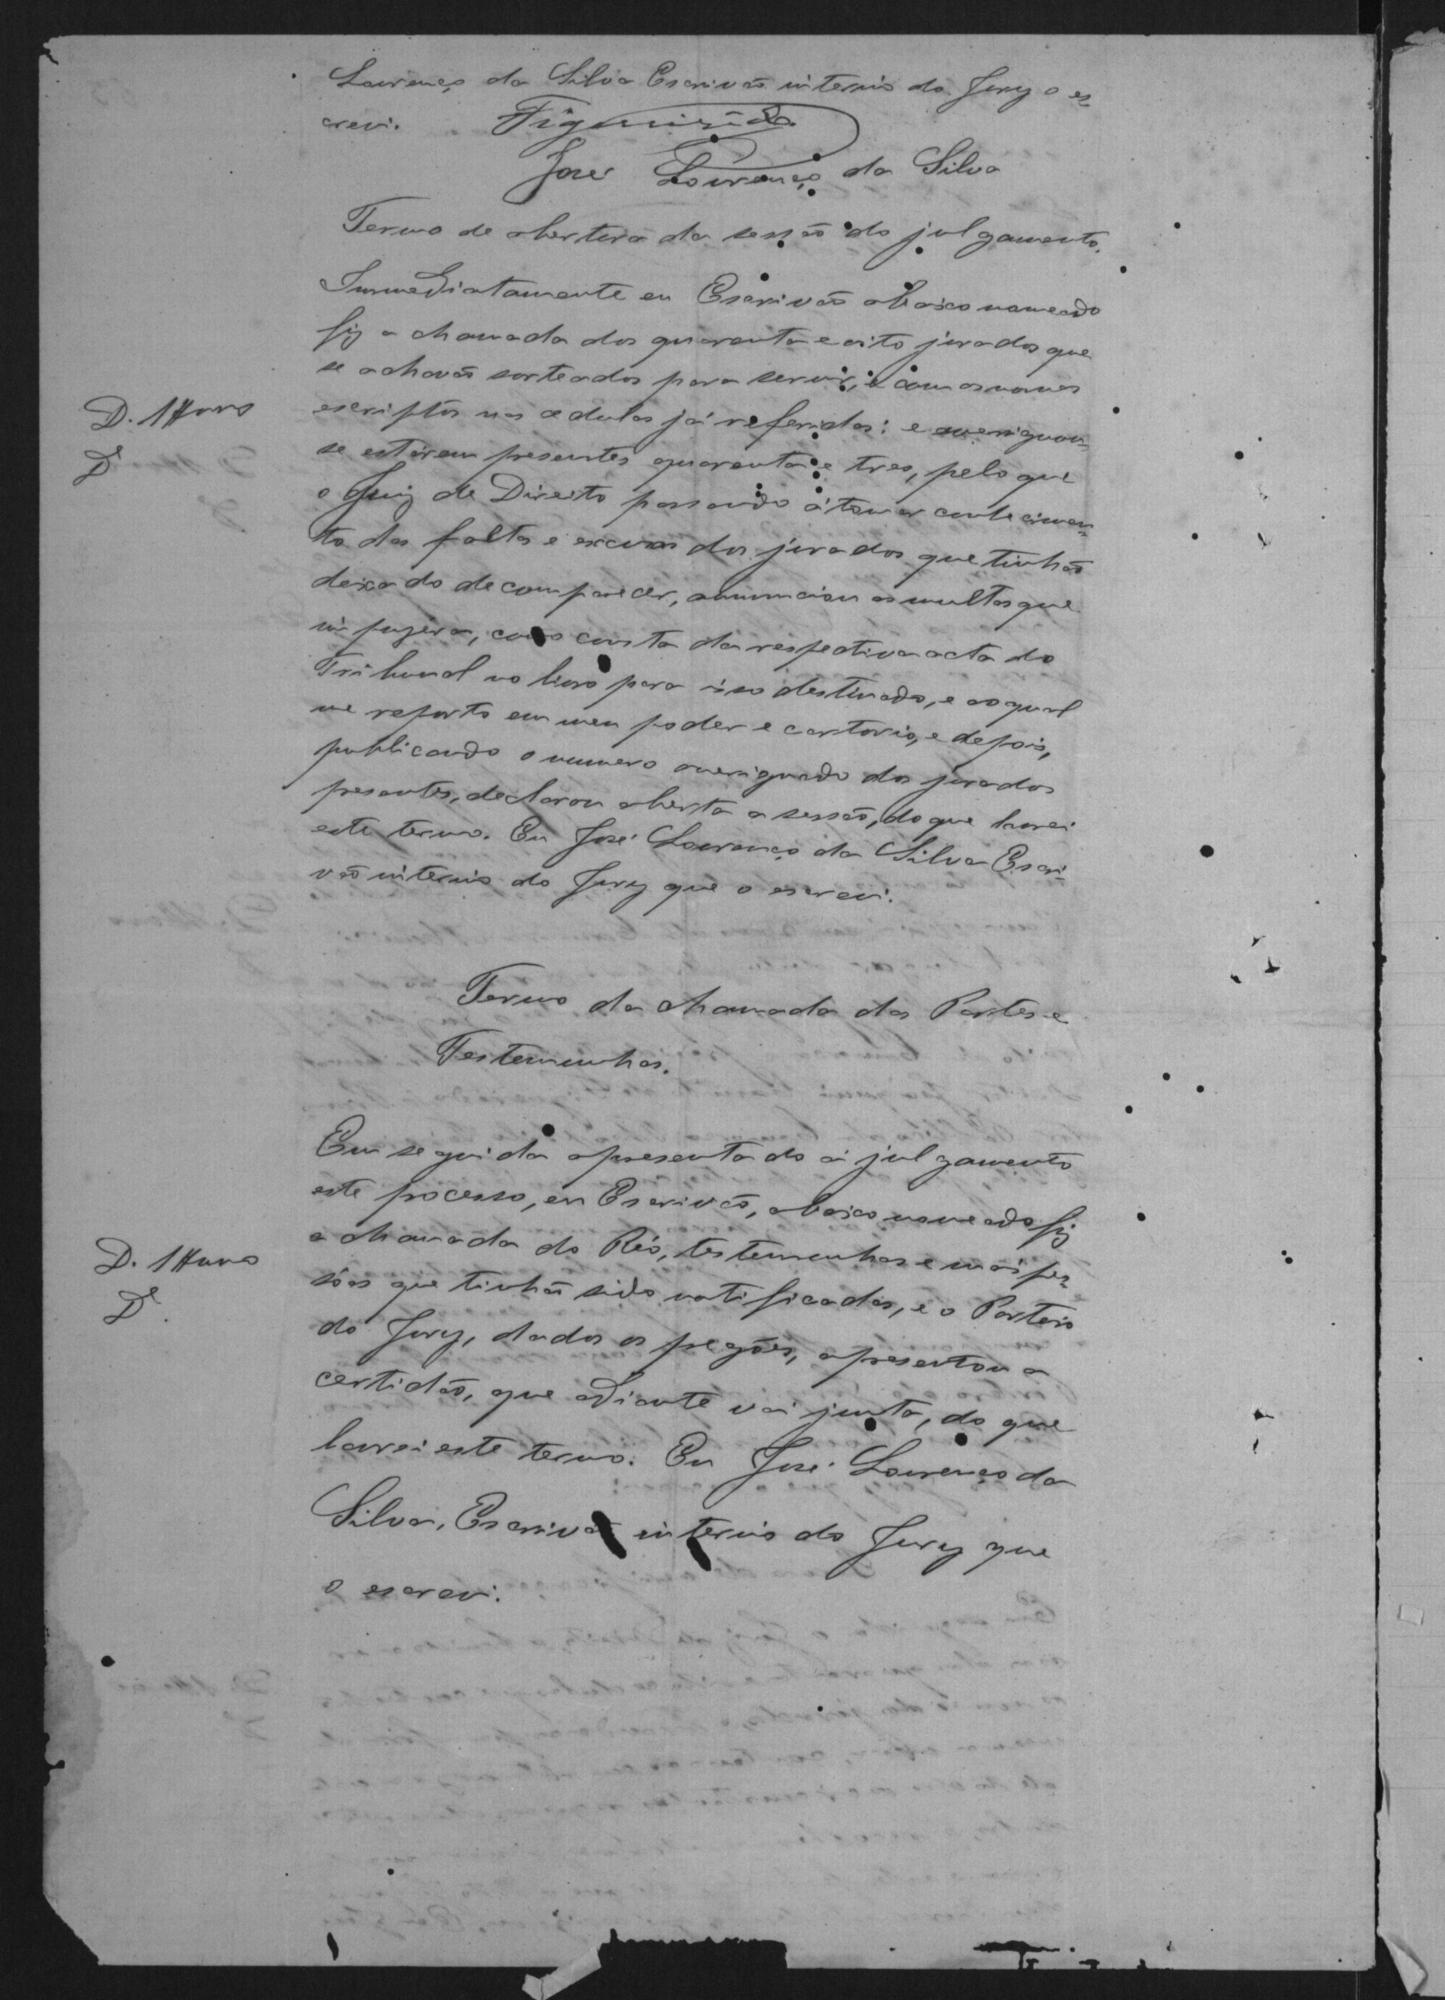 Lourenço da Silva Escrivão interino do Jury o es-
crevi. Figueirêdo
José Lourenço da Silva
Termo de abertura da sessão do julgamento.
Immediatamente eu Escrivão abaixo nomeado
fiz a chamada dos quarenta e oito jurados que
se achavão sorteados para servir, e com os nomes
escriptos nas cedulas já referidas: e averiguou-
se estarem presentes quarenta e tres, pelo que
o Juiz de Direito passando á tomar conhecimen-
to das faltas e escusas dos jurados que tinhão
deixado de comparecer, annunciou as multas que
impuzera, como consta da respectiva acta do
Tribunal no livro para isso destinado, e ao qual
me reporto em meu poder e cartorio, e depois,
publicando o numero averiguado dos jurados
presentes, declarou aberta a sessão, do que lavrei
este termo. Eu José Lourenço da Silva Escri-
vão interino do Jury que o escrevi.
Termo da chamada das Partes e
Testemunhas.
Em seguida apresentado á julgamento
este processo, eu Escrivão, abaixo nomeado fiz
a chamada do Réo, testemunhas e mais pes-
sôas que tinhão sido notificadas, e o Porteiro
do Jury, dados os pregões, apresentou a
certidão, que adiante vai junta, do que
lavrei este termo. Eu José Lourenço da
Silva, Escrivão interino do Jury que
o escrevi.
D.
D.